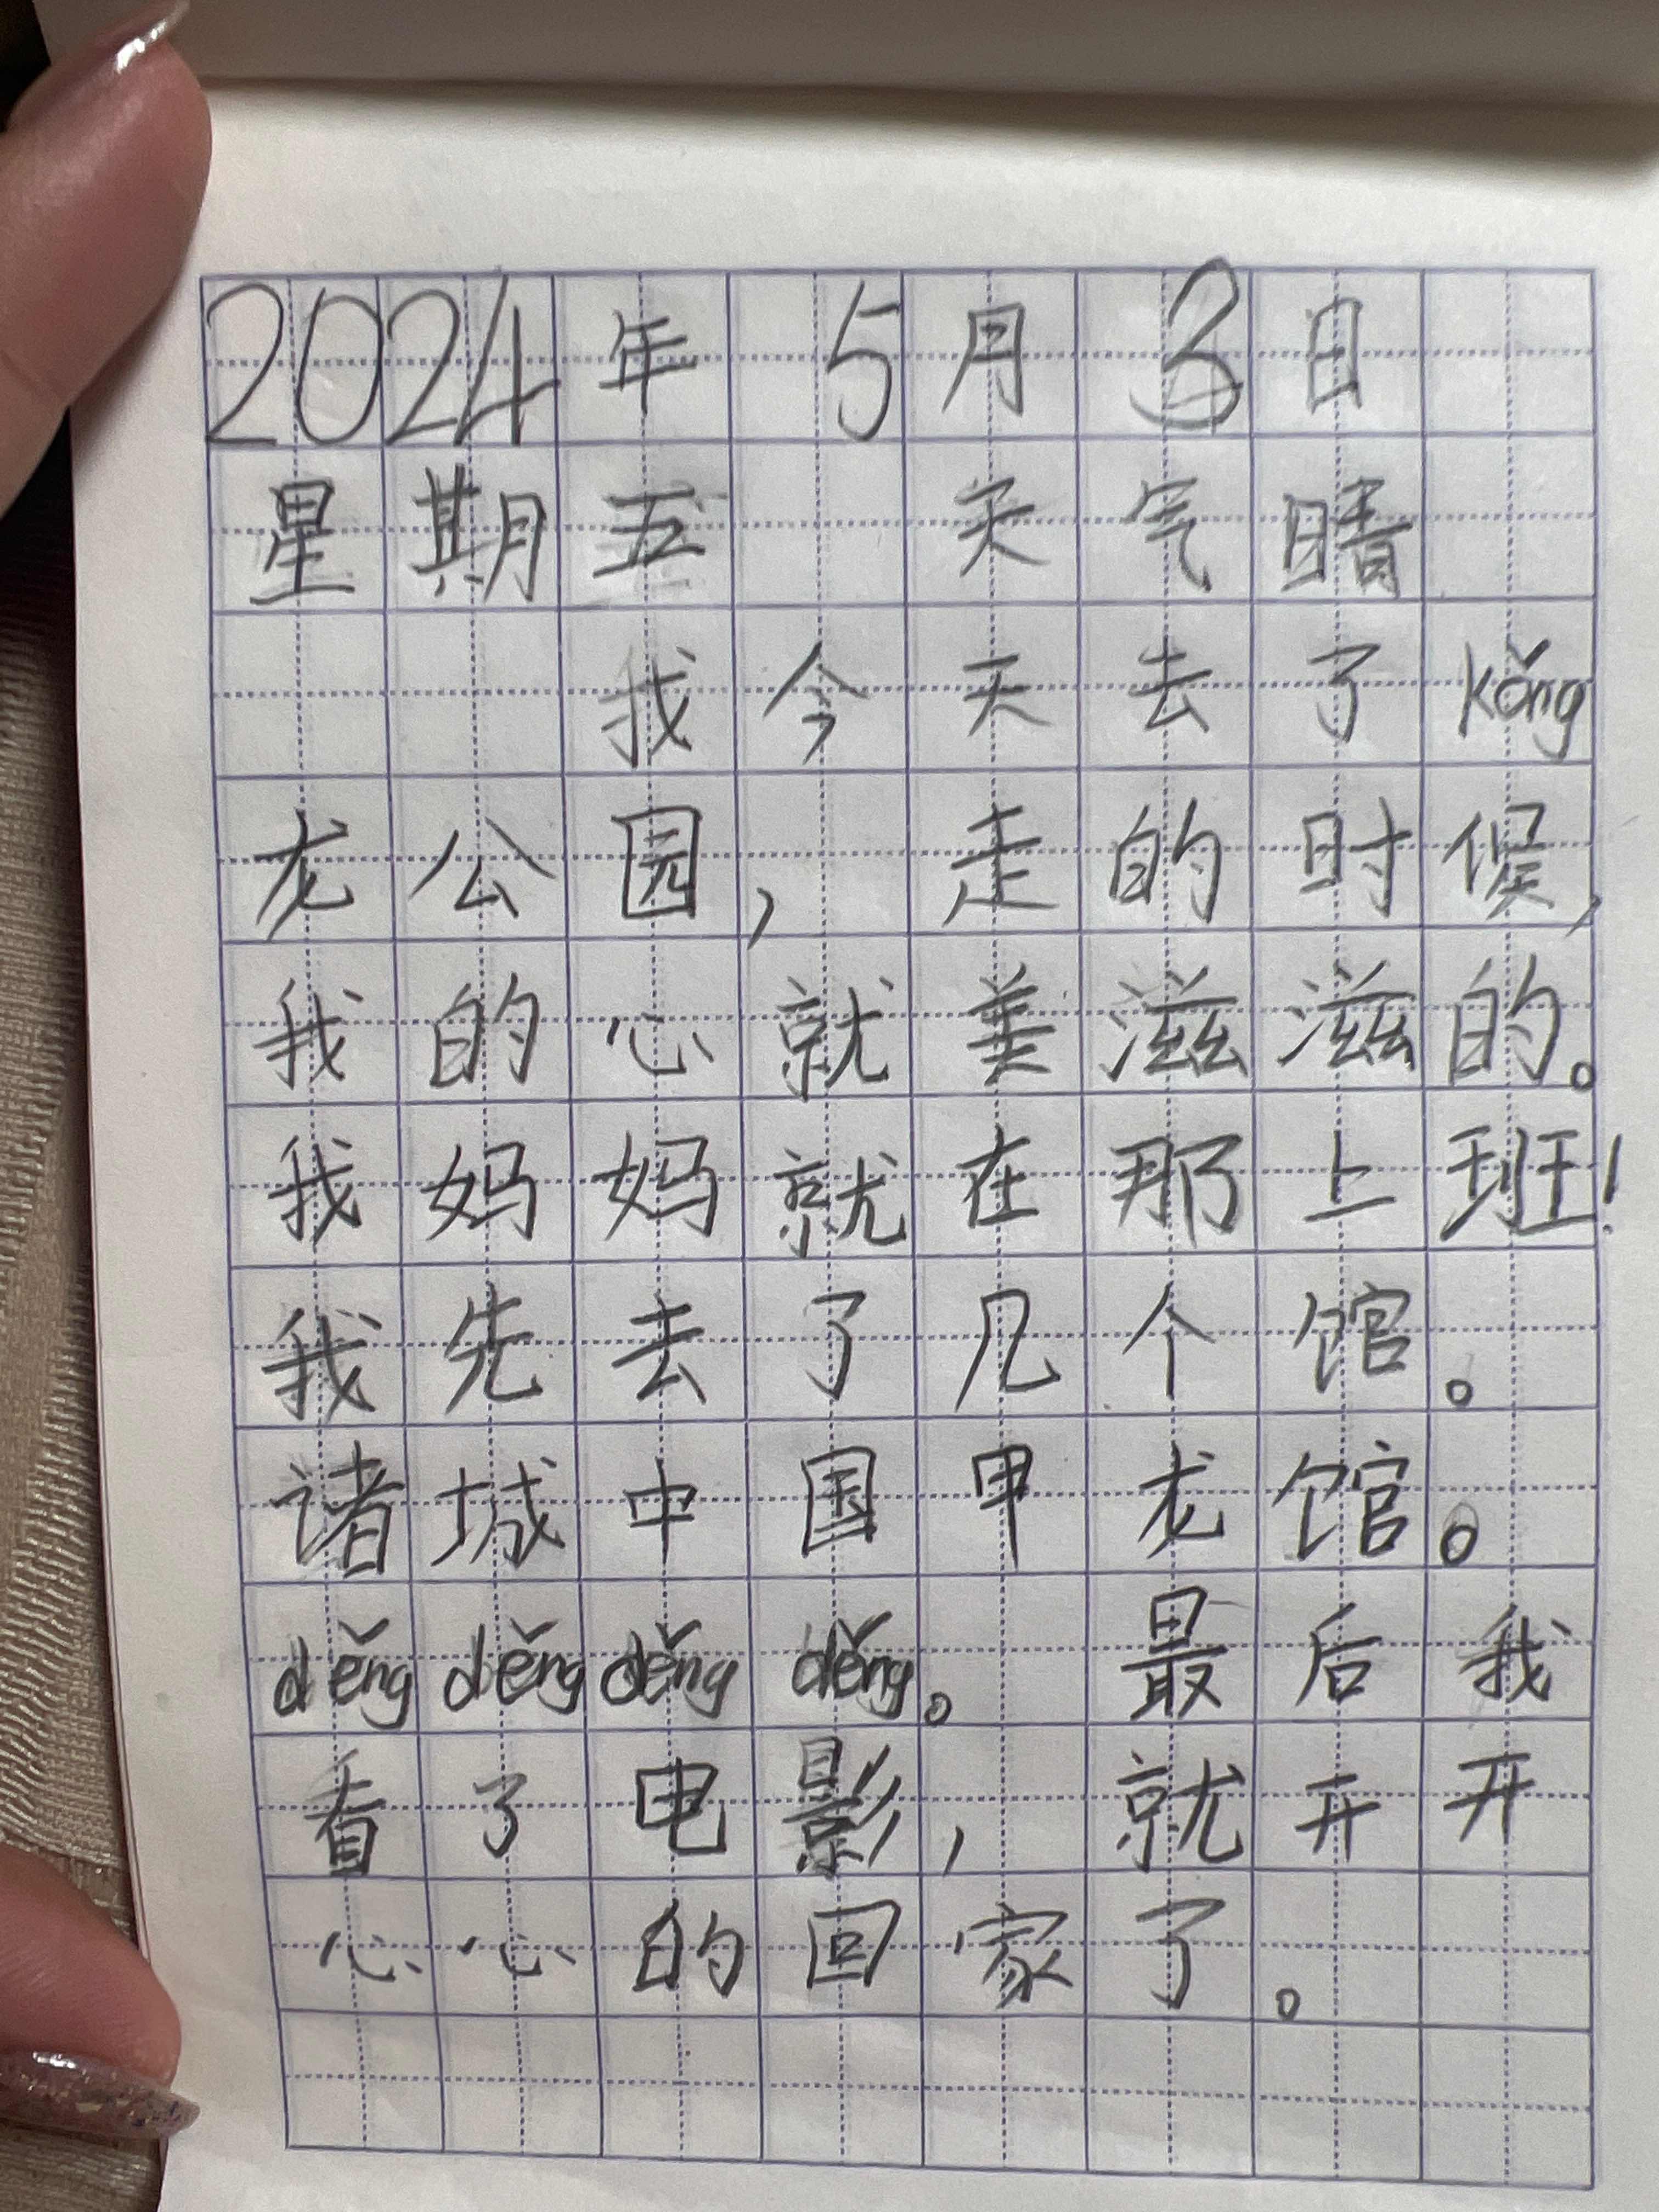 2024年 5月3日
星期五 天气晴
我今天去了kǒng
龙公园，走的时候，
我的心就美滋滋的。
我妈妈就在那上班！
我先去了几个馆。
诸城中国甲龙馆。
děng děng děng děng。最后我
看了电影，就开开
心心的回家了。